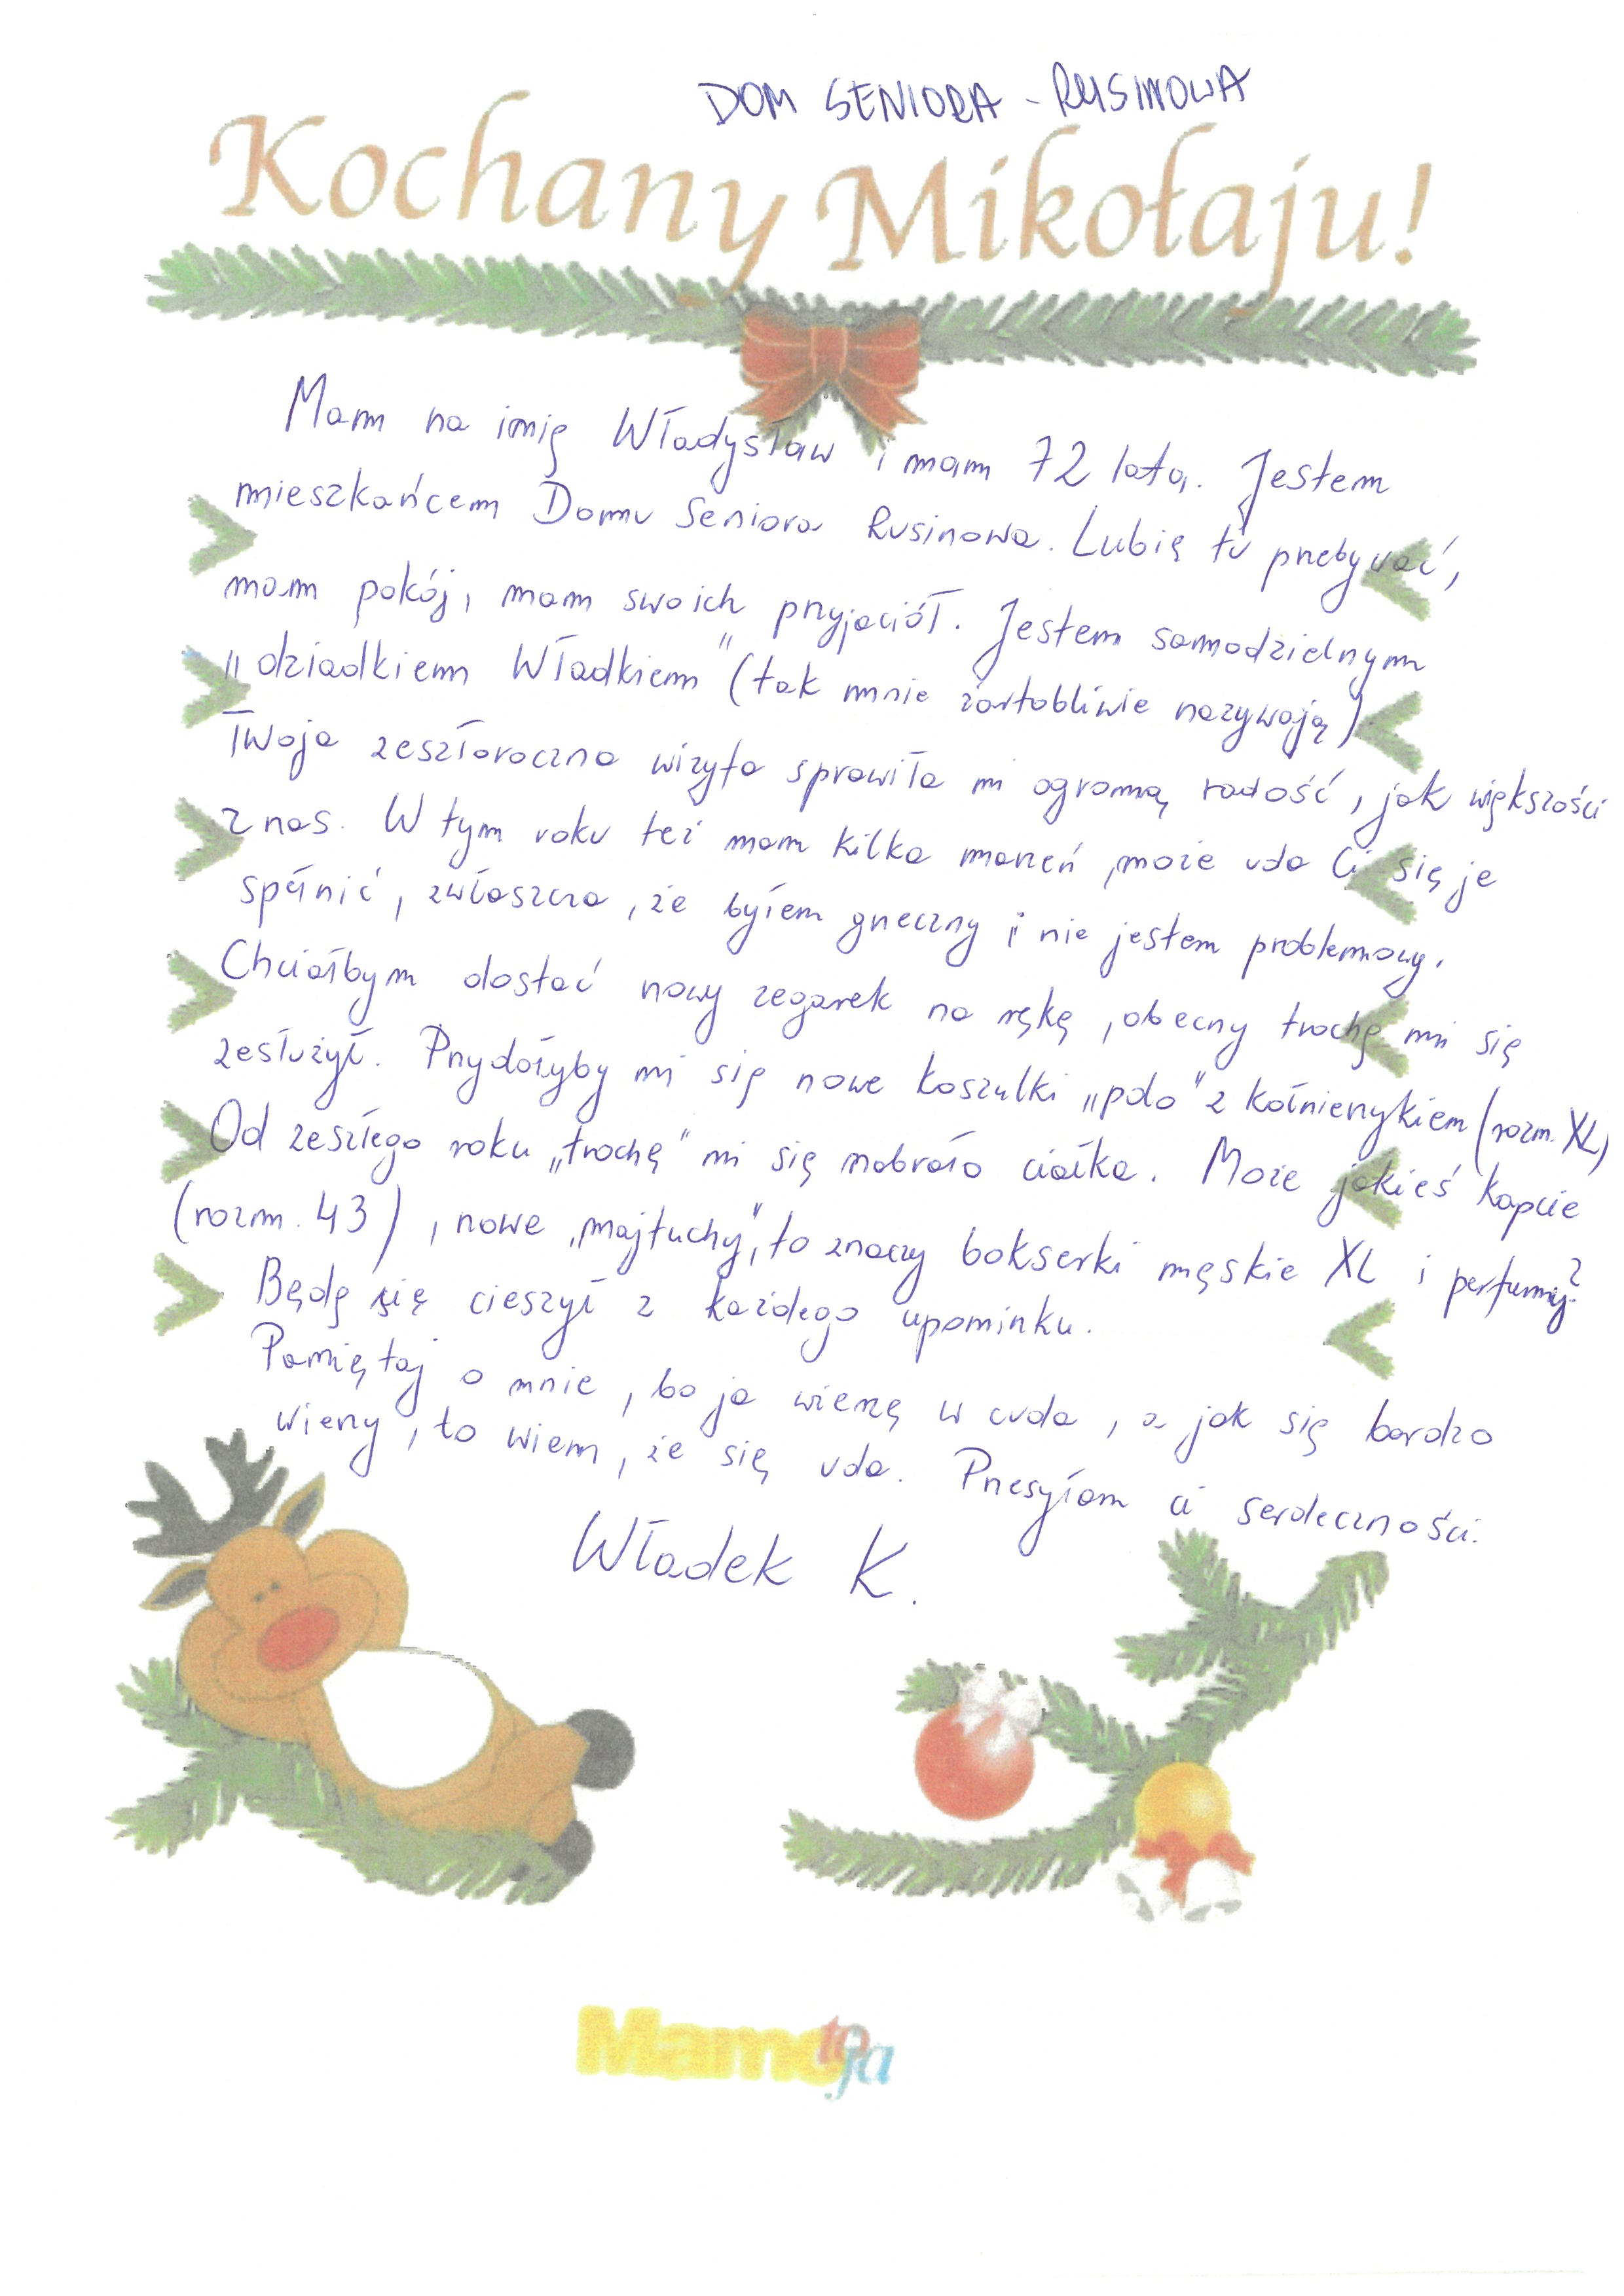 DOM SENIORA - RUSINOWA
Kochany Mikołaju!
Mam na imię Władysław i mam 72 lata. Jestem
mieszkańcem Domu Seniora Rusinowa. Lubię tu przebywać,
mam pokój, mam swoich przyjaciół. Jestem samodzielnym
„dziadkiem Władkiem" (tak mnie żartobliwie nazywają)
Twoja zeszłoroczna wizyta sprawiła mi ogromną radość, jak większości
z nas. W tym roku też mam kilka marzeń, może uda Ci się je
spełnić, zwłaszcza, że byłem grzeczny i nie jestem problemowy.
Chciałbym dostać nowy zegarek na rękę, obecny trochę mi się
zesłużył. Przydałyby mi się nowe koszulki „polo" z kołnierzykiem (rozm. XL)
Od zeszłego roku „trochę" mi się nabrało ciałka. Może jakieś kapcie
(rozm. 43), nowe „majtuchy", to znaczy bokserki męskie XL i perfumy?
Będę się cieszył z każdego upominku.
Pamiętaj o mnie, bo ja wierzę w cuda, a jak się bardzo
wierzy, to wiem, że się uda. Przesyłam ci serdeczności.
Władek K.
Mamo to ja